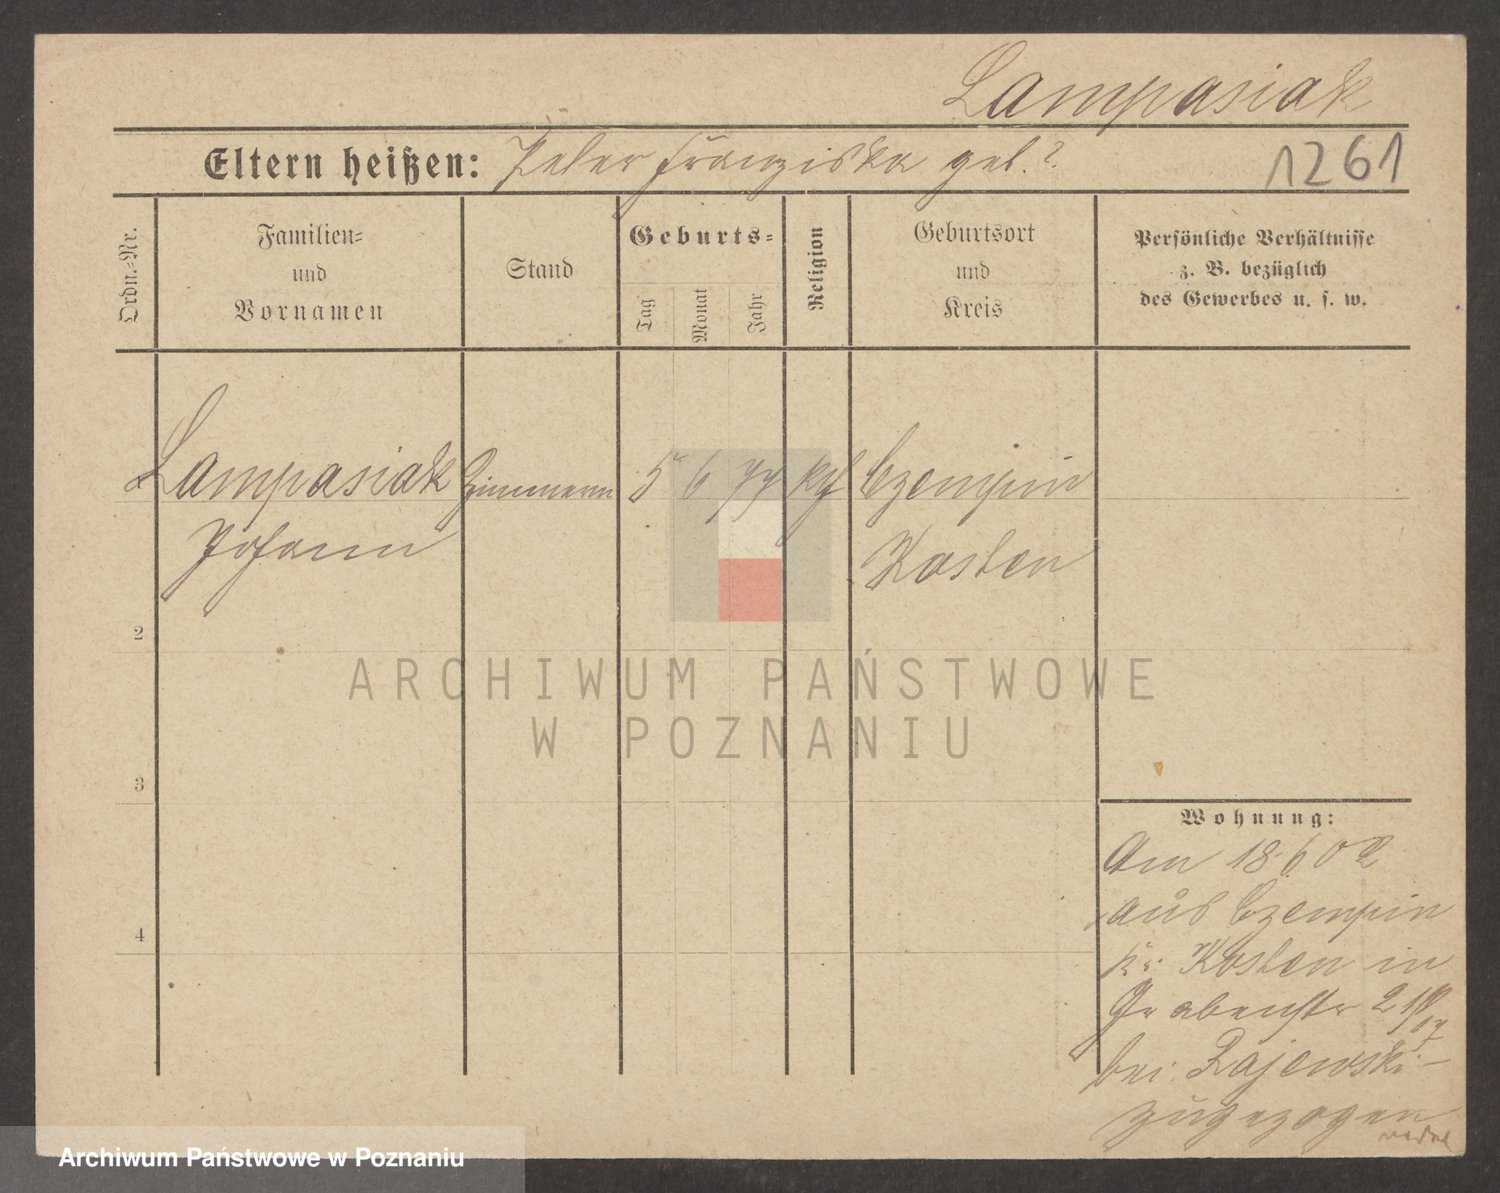 Lampasiak
Eltern heißen: Peter Franziska geb. ?
1261
Ordn.-Nr.
Familien-
und
Vornamen
Stand
Geburts-
Tag
Monat
Jahr
Religion
Geburtsort
und
Kreis
Persönliche Verhältnisse
z. B. bezüglich
des Gewerbes u. s. w.
Lampasiak Zimmerm 5 6 77 kth Czempin
Johann Kosten
2
3
4
ARCHIWUM PAŃSTWOWE
W POZNANIU
Wohnung:
Am 18.6 02
aus Czempin
Kr. Kosten in
Grabenstr 21
bei Rajewski
zugezogen
Archiwum Państwowe w Poznaniu